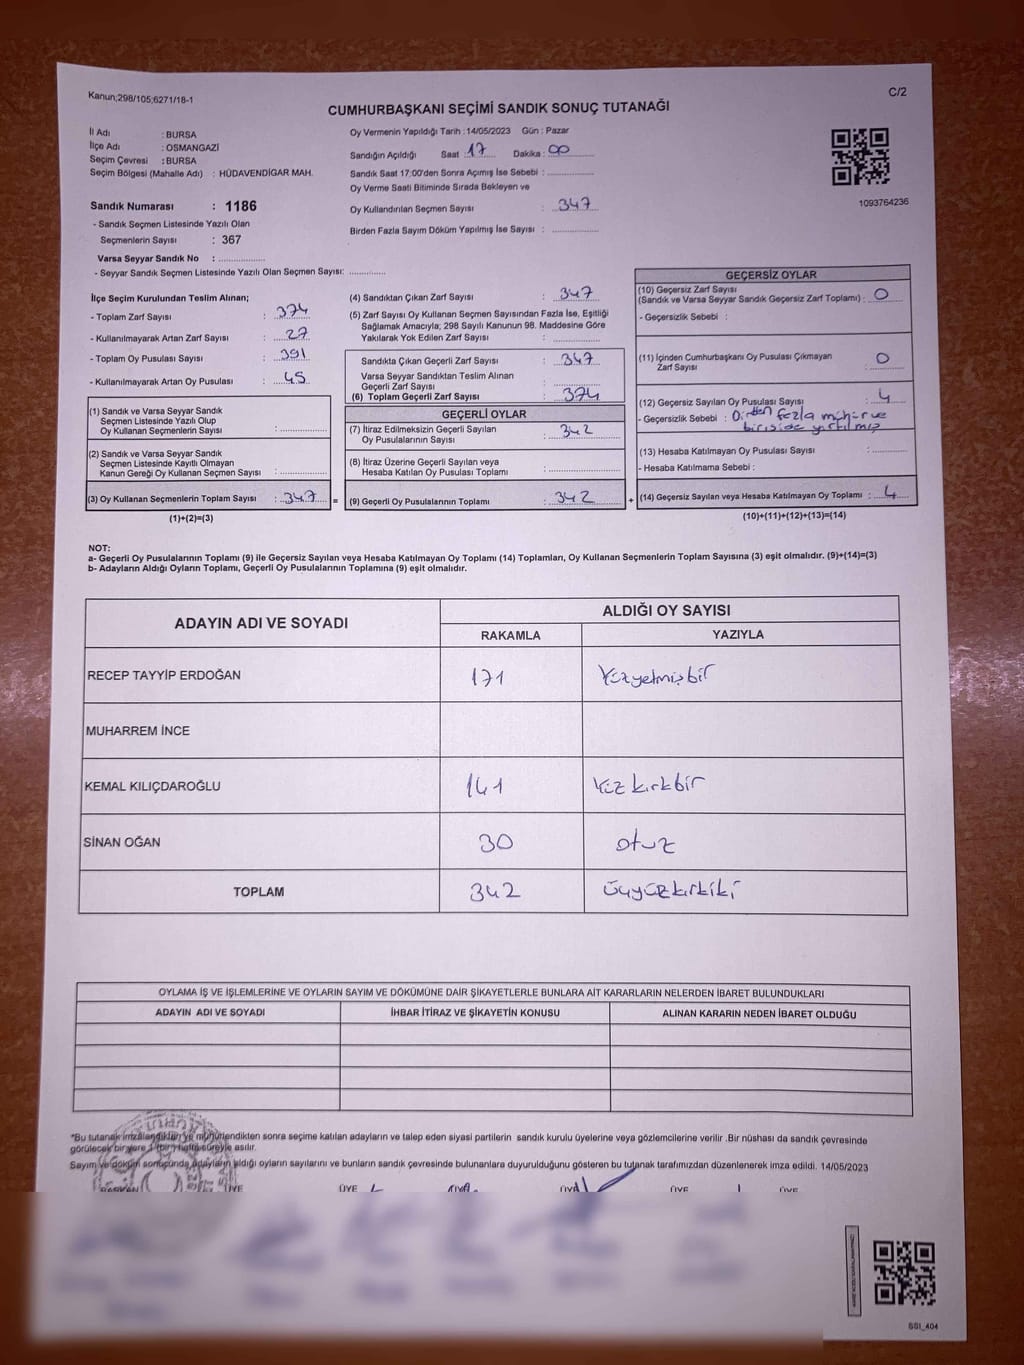 Kanun;298/105,6271/18-1
C/2
CUMHURBAŞKANI SEÇİMİ SANDIK SONUÇ TUTANAĞI
İl Adı : BURSA
İlçe Adı : OSMANGAZİ
Seçim Çevresi : BURSA
Seçim Bölgesi (Mahalle Adı) : HÜDAVENDİGAR MAH.
Sandık Numarası : 1186
- Sandık Seçmen Listesinde Yazılı Olan
Seçmenlerin Sayısı : 367
Varsa Seyyar Sandık No : ..................
- Seyyar Sandık Seçmen Listesinde Yazılı Olan Seçmen Sayısı: ............
Oy Vermenin Yapıldığı Tarih : 14/05/2023 Gün : Pazar
Sandığın Açıldığı Saat : 17 Dakika : 00
Sandık Saat 17:00'den Sonra Açımış İse Sebebi : ...............
Oy Verme Saati Bitiminde Sırada Bekleyen ve
Oy Kullandırılan Seçmen Sayısı : 347
Birden Fazla Sayım Döküm Yapılmış İse Sayısı : ...............
1093764236
İlçe Seçim Kurulundan Teslim Alınan;
- Toplam Zarf Sayısı : 374
- Kullanılmayarak Artan Zarf Sayısı : 27
- Toplam Oy Pusulası Sayısı : 391
- Kullanılmayarak Artan Oy Pusulası : 45
(1) Sandık ve Varsa Seyyar Sandık
Seçmen Listesinde Yazılı Olup
Oy Kullanan Seçmenlerin Sayısı : ...............
(2) Sandık ve Varsa Seyyar Sandık
Seçmen Listesinde Kayıtlı Olmayan
Kanun Gereği Oy Kullanan Seçmen Sayısı : ...............
(3) Oy Kullanan Seçmenlerin Toplam Sayısı : 347 =
(1)+(2)=(3)
(4) Sandıktan Çıkan Zarf Sayısı : 347
(5) Zarf Sayısı Oy Kullanan Seçmen Sayısından Fazla İse, Eşitliği
Sağlamak Amacıyla; 298 Sayılı Kanunun 98. Maddesine Göre
Yakılarak Yok Edilen Zarf Sayısı : ...............
Sandıkta Çıkan Geçerli Zarf Sayısı : 347
Varsa Seyyar Sandıktan Teslim Alınan
Geçerli Zarf Sayısı : ...............
(6) Toplam Geçerli Zarf Sayısı : 374
GEÇERLİ OYLAR
(7) İtiraz Edilmeksizin Geçerli Sayılan
Oy Pusulalarının Sayısı : 342
(8) İtiraz Üzerine Geçerli Sayılan veya
Hesaba Katılan Oy Pusulası Toplamı : ...............
(9) Geçerli Oy Pusulalarının Toplamı : 342 +
GEÇERSİZ OYLAR
(10) Geçersiz Zarf Sayısı
(Sandık ve Varsa Seyyar Sandık Geçersiz Zarf Toplamı) : 0
- Geçersizlik Sebebi :
(11) İçinden Cumhurbaşkanı Oy Pusulası Çıkmayan
Zarf Sayısı : 0
(12) Geçersiz Sayılan Oy Pusulası Sayısı : 4
- Geçersizlik Sebebi : Birden fazla mühür ve
biriside yırtılmış
(13) Hesaba Katılmayan Oy Pusulası Sayısı : ...............
- Hesaba Katılmama Sebebi :
(14) Geçersiz Sayılan veya Hesaba Katılmayan Oy Toplamı : 4
(10)+(11)+(12)+(13)=(14)
NOT:
a- Geçerli Oy Pusulalarının Toplamı (9) ile Geçersiz Sayılan veya Hesaba Katılmayan Oy Toplamı (14) Toplamları, Oy Kullanan Seçmenlerin Toplam Sayısına (3) eşit olmalıdır. (9)+(14)=(3)
b- Adayların Aldığı Oyların Toplamı, Geçerli Oy Pusulalarının Toplamına (9) eşit olmalıdır.
ADAYIN ADI VE SOYADI
ALDIĞI OY SAYISI
RAKAMLA YAZIYLA
RECEP TAYYİP ERDOĞAN 171 Yüzyetmişbir
MUHARREM İNCE
KEMAL KILIÇDAROĞLU 141 Yüz kırkbir
SİNAN OĞAN 30 otuz
TOPLAM 342 Üçyüzkırkiki
OYLAMA İŞ VE İŞLEMLERİNE VE OYLARIN SAYIM VE DÖKÜMÜNE DAİR ŞİKAYETLERLE BUNLARA AİT KARARLARIN NELERDEN İBARET BULUNDUKLARI
ADAYIN ADI VE SOYADI İHBAR İTİRAZ VE ŞİKAYETİN KONUSU ALINAN KARARIN NEDEN İBARET OLDUĞU
*Bu tutanak imzalandıktan ve mühürlendikten sonra seçime katılan adayların ve talep eden siyasi partilerin sandık kurulu üyelerine veya gözlemcilerine verilir .Bir nüshası da sandık çevresinde
görülecek bir yere 1 (bir) hafta süreyle asılır.
Sayım ve döküm sonucunda adayların aldığı oyların sayılarını ve bunların sandık çevresinde bulunanlara duyurulduğunu gösteren bu tutanak tarafımızdan düzenlenerek imza edildi. 14/05/2023
BAŞKAN ÜYE ÜYE ÜYE ÜYE ÜYE ÜYE
SSI_404